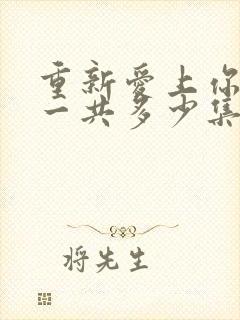 重新爱上你
一共多少集
将先生